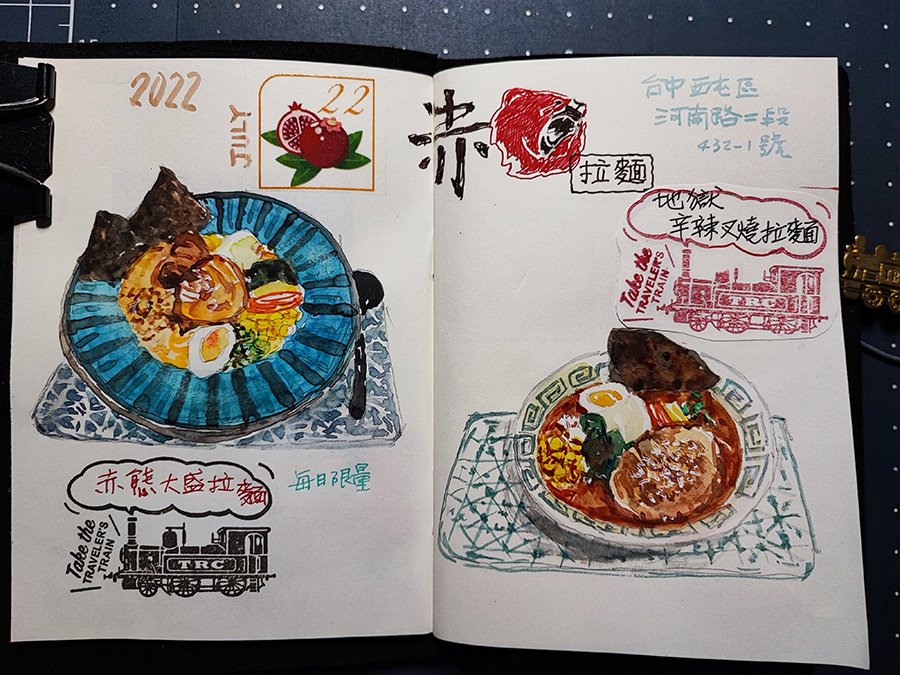 2022
JULY
22
赤熊大盛拉麵
每日限量
Take the
TRAVELER'S
TRAIN
TRC
赤
拉麵
台中西屯區
河南路二段
432-1號
地獄
辛辣叉燒拉麵
Take the
TRAVELER'S
TRAIN
TRC